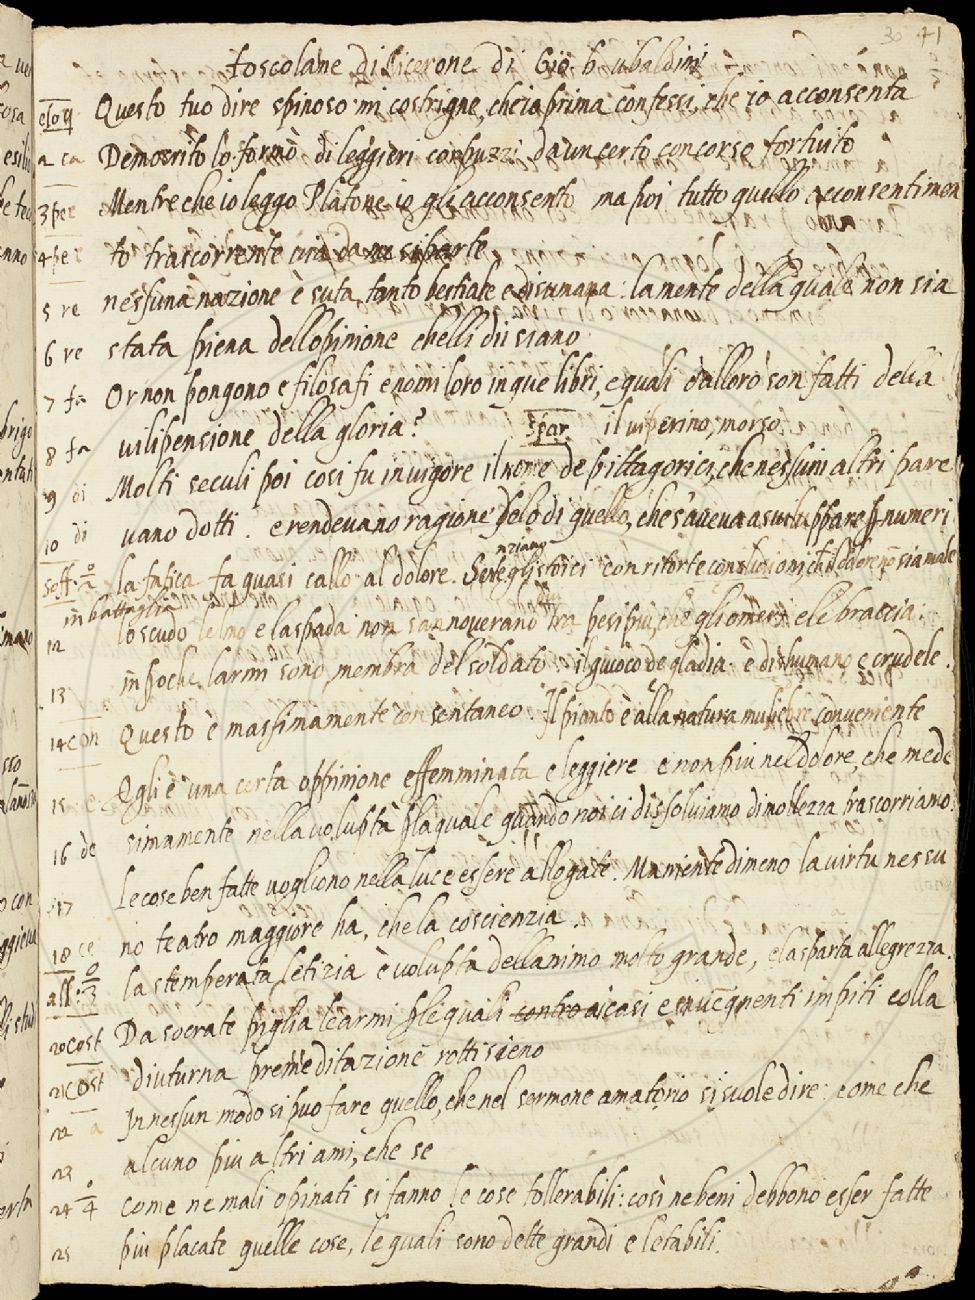 30 41
toscolane di Cicerone di Gio b ubaldini
eloq Questo tuo dire spinoso mi costrigne, che ia prima confessi, che io acconsenta
2 ca Democrito lo formò di leggieri corpuzzi da un certo concorso fortuito
3 per Mentre che io leggo Platone io gli acconsento ma poi tutto quello acconsentimen
4 per to trascorrente si parte
5 re nessuna nazione è suta tanto bestiale e disumana: la mente della quale non sia
6 re stata piena dell opinione che lli dii siano
7 fa Or non pongono e filosafi e nomi loro in que libri, e quali dalloro son fatti della
8 fa vilipensione della gloria? spar. il viperino, morso
9 di Molti seculi poi cosi fu in vigore il nome de pittagorici, che nessuni altri pare
10 di vano dotti. e rendevano ragione di quello, che s'aveva a sviluppare p numeri
soff. la fatica fa quasi callo al dolore. Se con ritorte sia male
in battaglia
12 lo scudo lelmo e la spada non noverano tra pesi piu, che gli omeri e le braccia.
13 inpoche larmi sono membra del soldato il giuoco de gladia. è dishumano e crudele.
14 con Questo è massimamente consentaneo. Il pianto è alla natura muliebre conveniente
15 Egli è una certa oppinione effemminata e leggiere e non piu nel dolore, che mede
16 de simamente nella voluptà p la quale quando noi ci dissolviamo di mollezza trascorriamo.
17 le cose ben fatte vogliono nella luce essere allogate. Ma niente dimeno la virtu nessu
18 ce no teatro maggiore ha, che la coscienzia.
all. la stemperata letizia è volupta dellanimo molto grande, e la sparta allegrezza.
20 cost Da socrate piglia le armi p le quali contro a i casi e impiti colla
21 cost diuturna premeditazione rotti sieno
22 a In nessun modo si puo fare quello, che nel sermone amatorio si suole dire: come che
23 alcuno piu altri ami, che se
24 come ne mali opinati si fanno le cose tollerabili: così ne beni debbono esser fatte
25 piu placate quelle cose, le quali sono dette grandi e letabili.